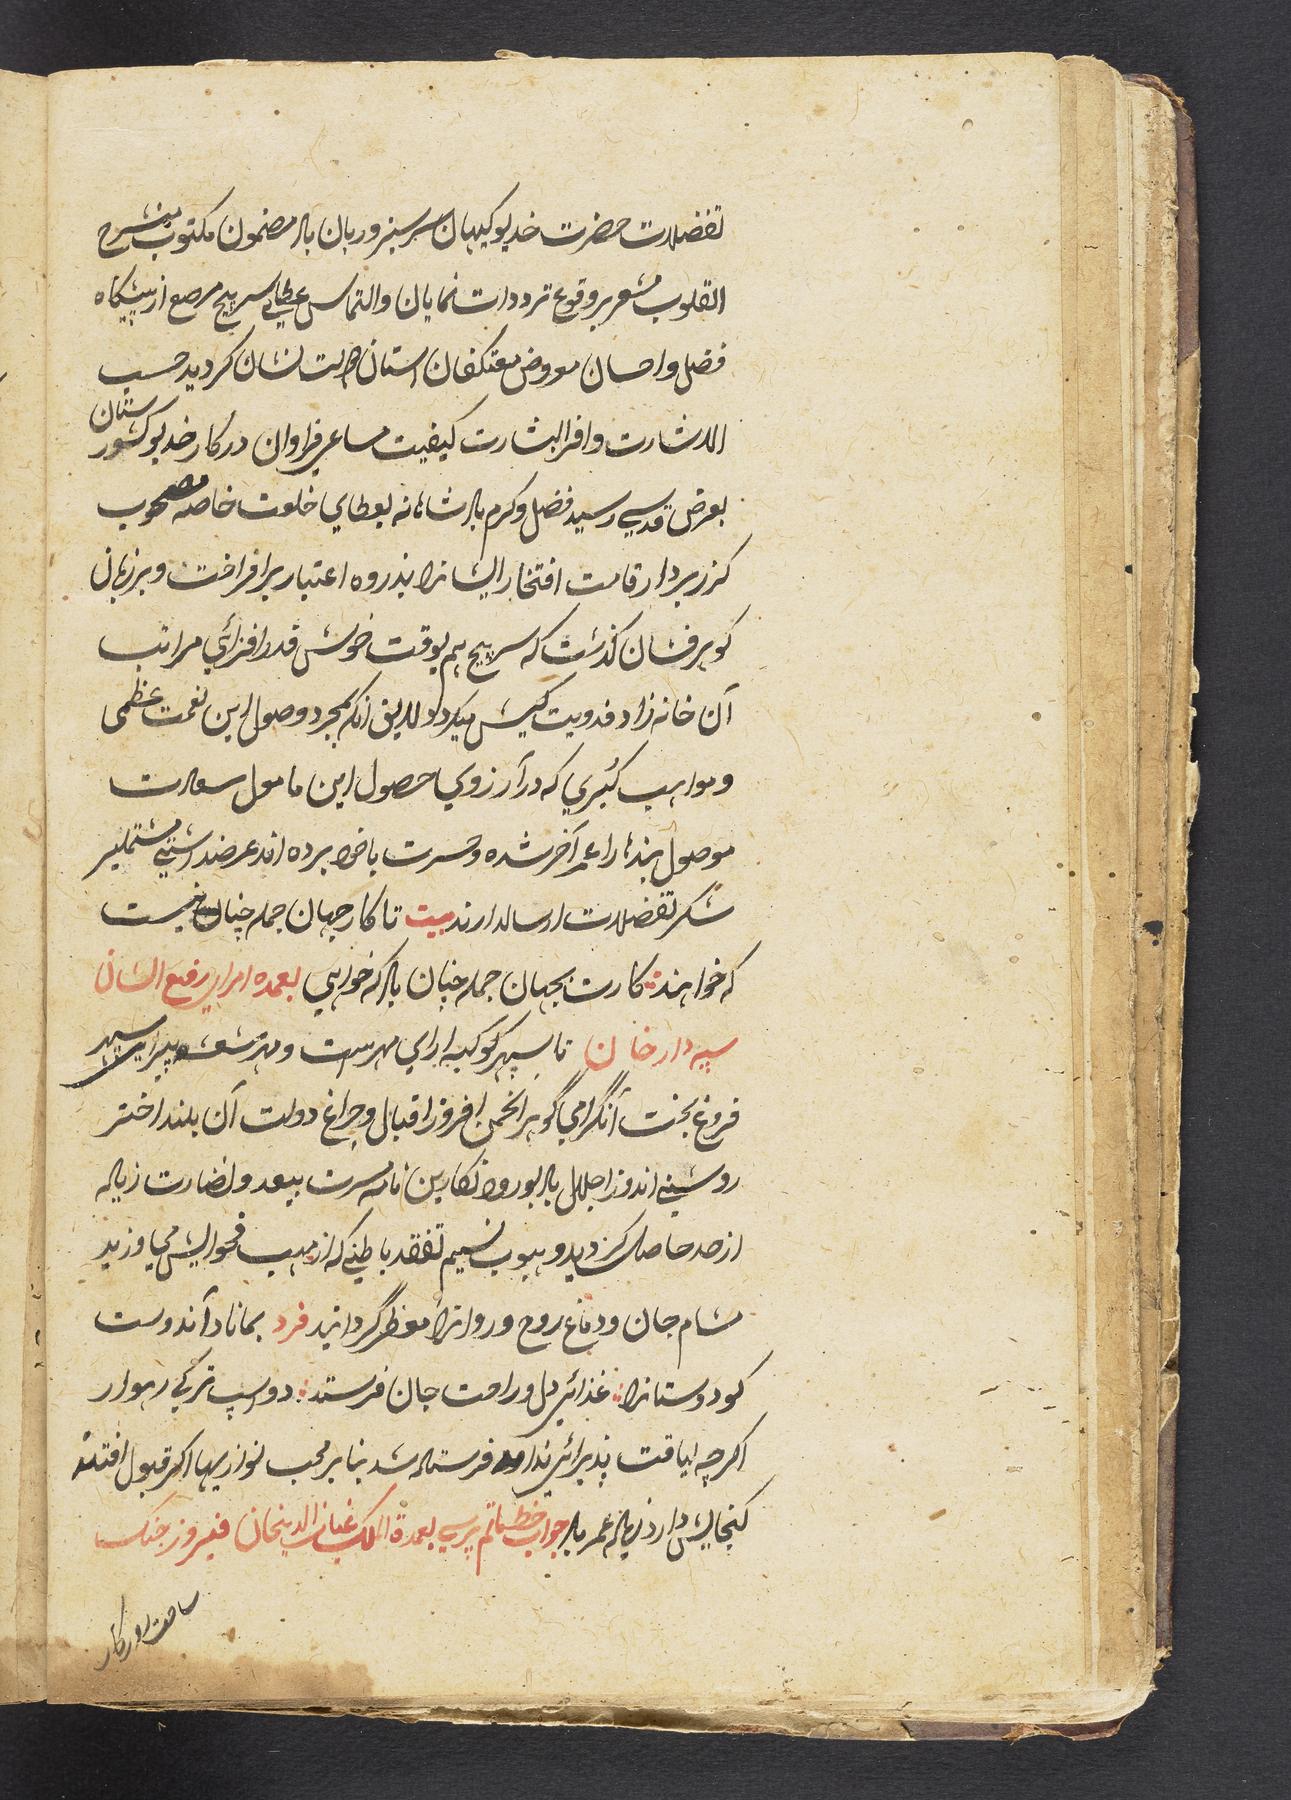 تفضلات حضرت خدیو کیهان سرسبز و ریان باد مضمون مکتوب منشرح
القلوب مشعر بر وقوع ترددات نمایان و التماس عطای سرپیچ مرصع از پیشگاه
فضل و احسان معروض معتکفان آستان نشان گردید حسب
الاشارت وافر البشارت کیفیت مساعی فراوان در کار خدیو کشورستان
بعرض قدسی رسید فضل و کرم بادشاهانه بعطای خلعت خاصه مصحوب
گرزبردار قامت افتخار ایشانرا بذروه اعتبار برافراخت و بر زبان
گوهرفشان گذشت که سرپیچ هم بوقت خوش قدرافزائی مراتب
آن خانه زاد فدویت کیش میگردد لایق آنکه بمجرد وصول این نعمت عظمی
و مواهب کبری که در آرزوی حصول این مامول سعادت
موصول بندها را عمر آخر شده و حسرت باخود برده اند عرضداشتی مشتملبر
شکر تفضلات ارسالدارند بیت تا کار جهان جمله چنان نیست
که خواهند کارت بجهان جمله چنان باد که خواهی بعمده امرای رفیع الشان
سپه دار خان تا سپهر کوکبه ارای مهرست و مهر پیرای سپهر
فروغ بخت آنگرامی گوهر انجمن افروز اقبال و چراغ دولت آن بلند اختر
روشنی اندوز اجلال باد بورود نگارین نامه مسرت بیعد و نضارت زیاده
از حد حاصل گردید و هبوب نسیم تفقد باطنی که از مهب فحوایش می وزید
مشام جان و دماغ روح و روانرا معطر گردانید فرد بماناد آندوست
کو دوستانرا غذای دل و راحت جان فرستد دو اسپ ترکی رهوار
اگرچه لیاقت پذیرائی ندارد فرستاده شد بنابر محب نوازیها اگر قبول افتد
گنجایش دارد زیاده عمر باد جواب خط ماتم پرسی بعمدة الملک غازی الدینخان فیروز جنگ
ساحت روزگار